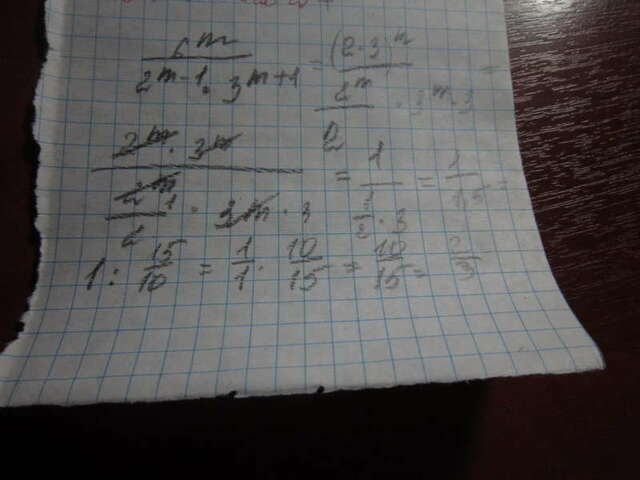 6^m / (2^{m-1} · 3^{m+1}) = (2·3)^m / (2^m/2 · 3^m · 3) =
(2^m · 3^m) / (2^m/2 · 3^m · 3) = 1 / (1/2 · 3) = 1 / 1,5 =
1 : 15/10 = 1/1 · 10/15 = 10/15 = 2/3